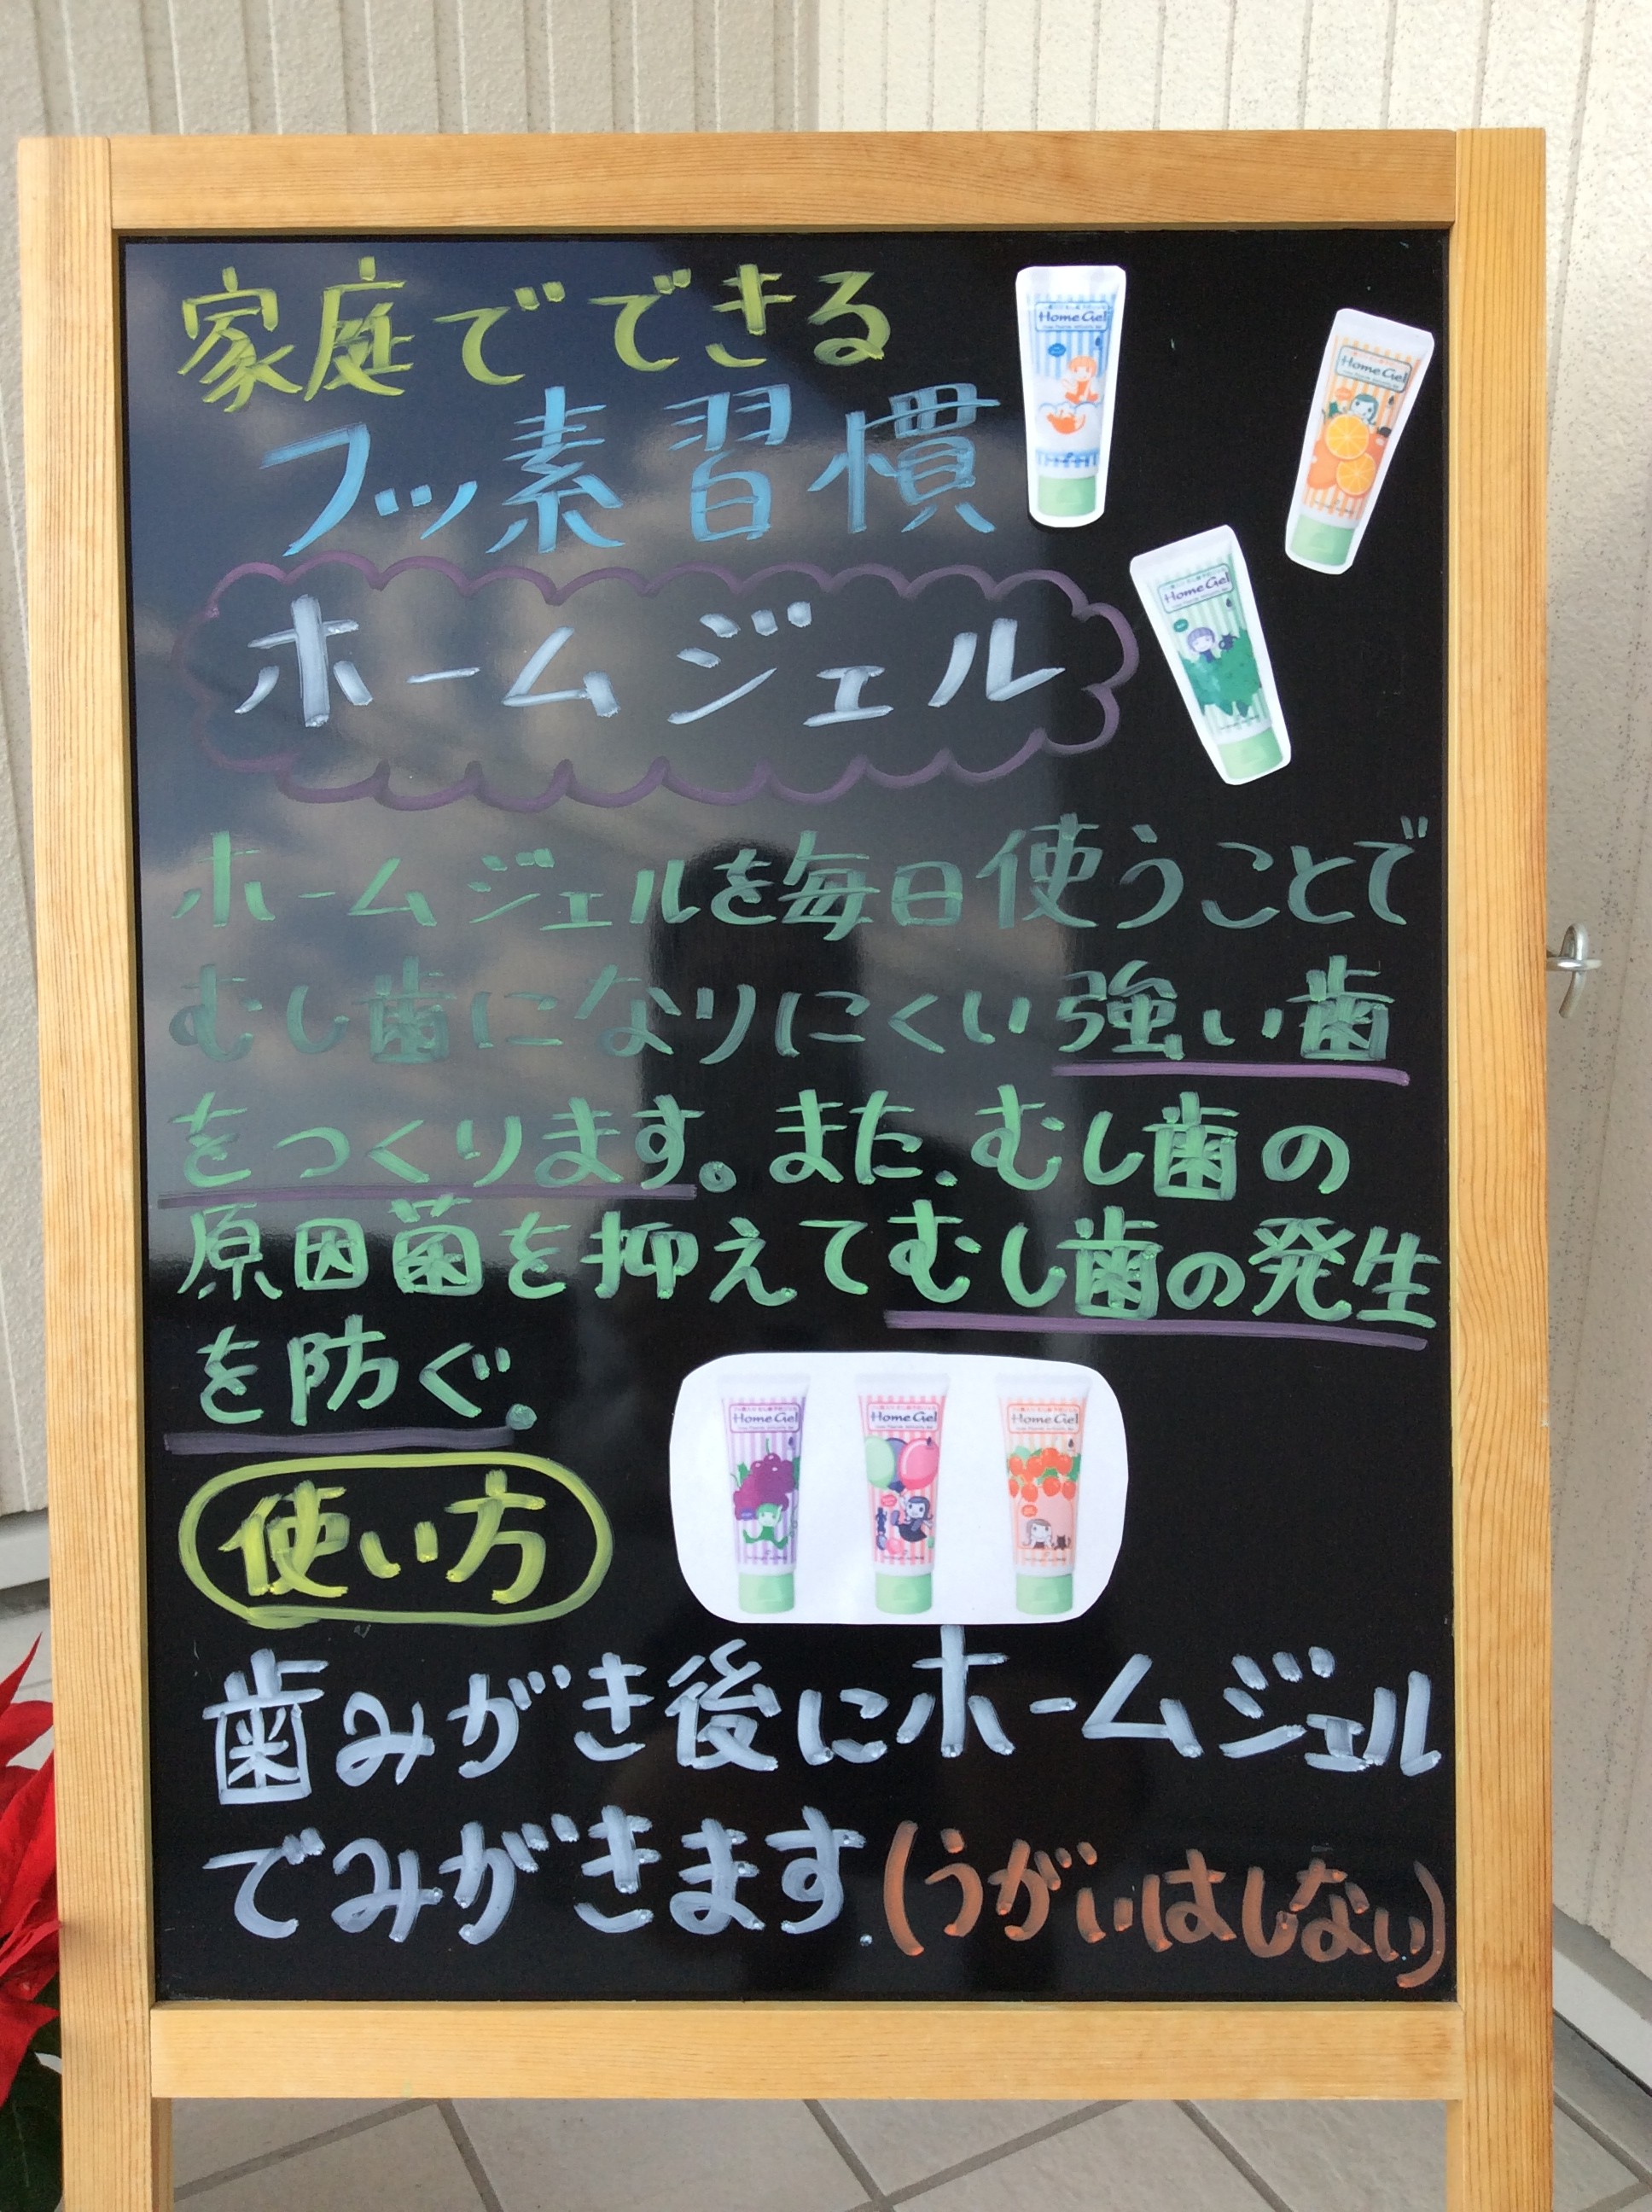 家庭でできる
フッ素習慣
ホームジェル
Home Gel
Home Gel
Home Gel
ホームジェルを毎日使うことで
むし歯になりにくい強い歯
をつくります。また、むし歯の
原因菌を抑えてむし歯の発生
を防ぐ。
Home Gel
Home Gel
Home Gel
使い方
歯みがき後にホームジェル
でみがきます。(うがいはしない)